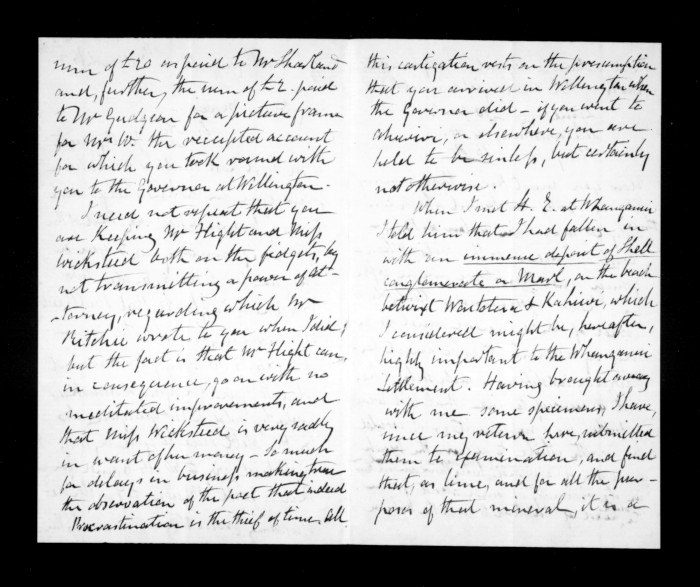 sum of £20 as paid to Mr Sharland
and, further, the sum of £2. paid
to Mr Gudgeon for a picture frame
for Mrs W. the receipted account
for which you took round with
you to the Governor at Wellington.
I need not repeat that you
are keeping Mr Flight and Miss
Wicksteed both on the fidgets, by
not transmitting a power of at-
-torney, regarding which Mr
Ritchie wrote to you when I did,
but the fact is that Mr Flight can,
in consequence, go on with no
meditated improvements, and
that Miss Wicksteed is very sadly
in want of her money - So much
for delays in business making true
the observation of the poet that indeed
Procrastination is the thief of time. All
this castigation rests on the presumption
that you arrived in Wellington when
the Governor did - if you went to
Ahuriri, or elsewhere, you are
held to be sinless, but certainly
not otherwise.
When I met H. E. at Whanganui
I told him that I had fallen in
with an immense deposit of Shell
conglomerate or Marl, on the beach
betwixt Waitotara & Kahiwi, which
I considered might be, hereafter,
highly important to the Whanganui
Settlement. Having brought away
with me some specimens, I have,
since my return here, submitted
them to examination, and find
that, as lime, and for all the pur-
poses of that mineral, it is a